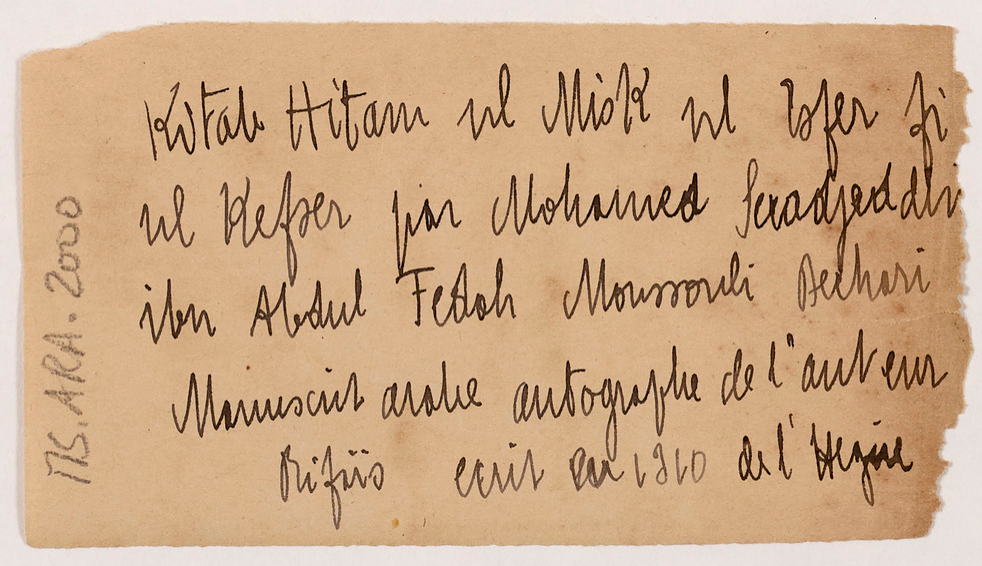 Kitab Hitam ul Misk ul Esfer fi
ul Kefser par Mohamed Seradjeddin
ibn Abdul Fettah Moussouli Bechari
Manuscrit arabe autographe de l'auteur
Rifiis ecrit en 1310 de l'Hegire
MS. ARA. 2000